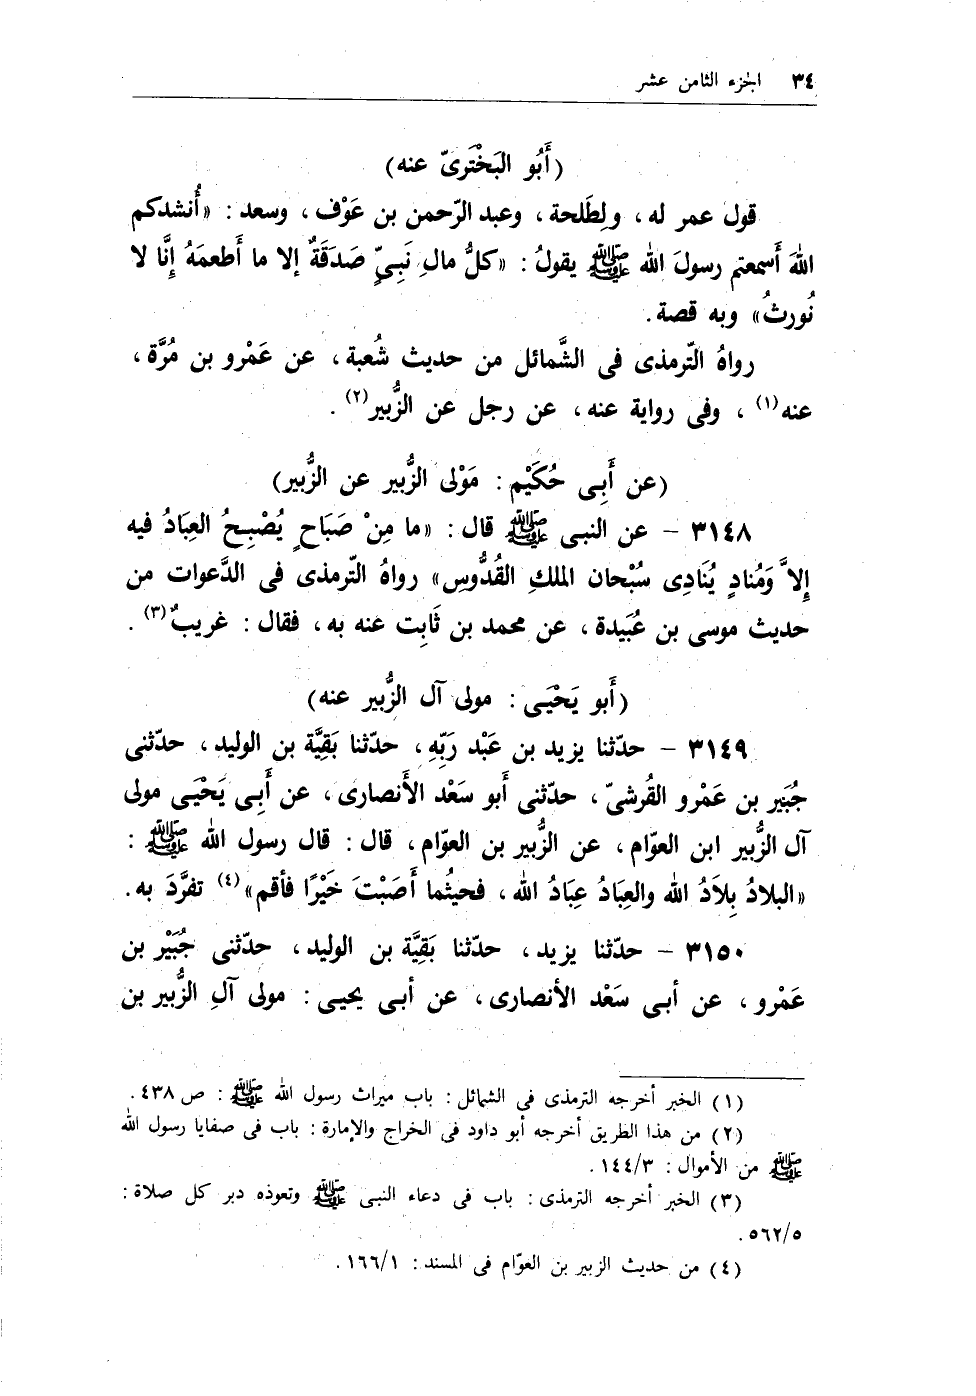 ٣٤ الجزء الثامن عشر
(أَبُو البَخْترىّ عنه)
قول عمر له، ولِطَلحة، وعبد الرّحمن بن عَوْف، وسعد: «أُنشدكم
اللهَ أَسمعتم رسولَ الله ﷺ يقولُ: «كلُّ مالِ نَبِىّ صَدَقَةٌ إلا ما أَطعمَهُ إنَّا لا
نُورثُ» وبه قصة.
رواهُ التّرمذى فى الشَّمائل من حديث شُعبة، عن عَمْرو بن مُرَّة،
عنه(١)، وفى رواية عنه، عن رجل عن الزُّبير(٢).
(عن أَبِى حُكَيْم: مَوْلى الزُّبير عن الزُّبير)
٣١٤٨ - عن النبى ﷺ قال: «ما مِنْ صَبَاحٍ يُصْبِحُ العِبَادُ فيه
إِلاَّ وَمُنادٍ يُنَادِى سُبْحان الملكِ القُدُّوسِ» رواهُ التّرمذى فى الدَّعوات من
حديث موسى بن عُبَيدة، عن محمد بن ثَابِت عنه به، فقال: غريبٌ(٣).
(أَبو يَحْيَى: مولى آل الزُّبير عنه)
٣١٤٩ - حدّثنا يزيد بن عَبْد رَبّهِ، حدّثنا بَقِيَّة بن الوليد، حدّثنى
جُبَير بن عَمْرو القُرشىّ، حدّثنى أَبو سَعْد الأَنصارى، عن أَبِى يَحْيَى مولى
آل الزُّبير ابن العوّام، عن الزُّبير بن العوّام، قال: قال رسول الله ﷺ:
«البلادُ بِلاَدُ الله والعِبَادُ عِبَادُ الله، فحيثُما أَصَبْتَ خَيْرًا فأقم»(٤) تفرَّدَ به.
٣١٥٠ - حدّثنا يزيد، حدّثنا بَقِيَّة بن الوليد، حدّثنى جُبَيْر بن
عَمْرو، عن أبى سَعْد الأنصارى، عن أبى يحيى: مولى آلِ الزُّبير بن
(١) الخبر أخرجه الترمذى فى الشمائل: باب ميراث رسول الله ﷺ: ص ٤٣٨.
(٢) من هذا الطريق أخرجه أبو داود فى الخراج والإمارة: باب فى صفايا رسول الله
ﷺ من الأموال: ١٤٤/٣.
(٣) الخبر أخرجه الترمذى: باب فى دعاء النبى ﷺ وتعوذه دبر كل صلاة:
٥٦٢/٥.
(٤) من حديث الزبير بن العوّام فى المسند: ١٦٦/١.